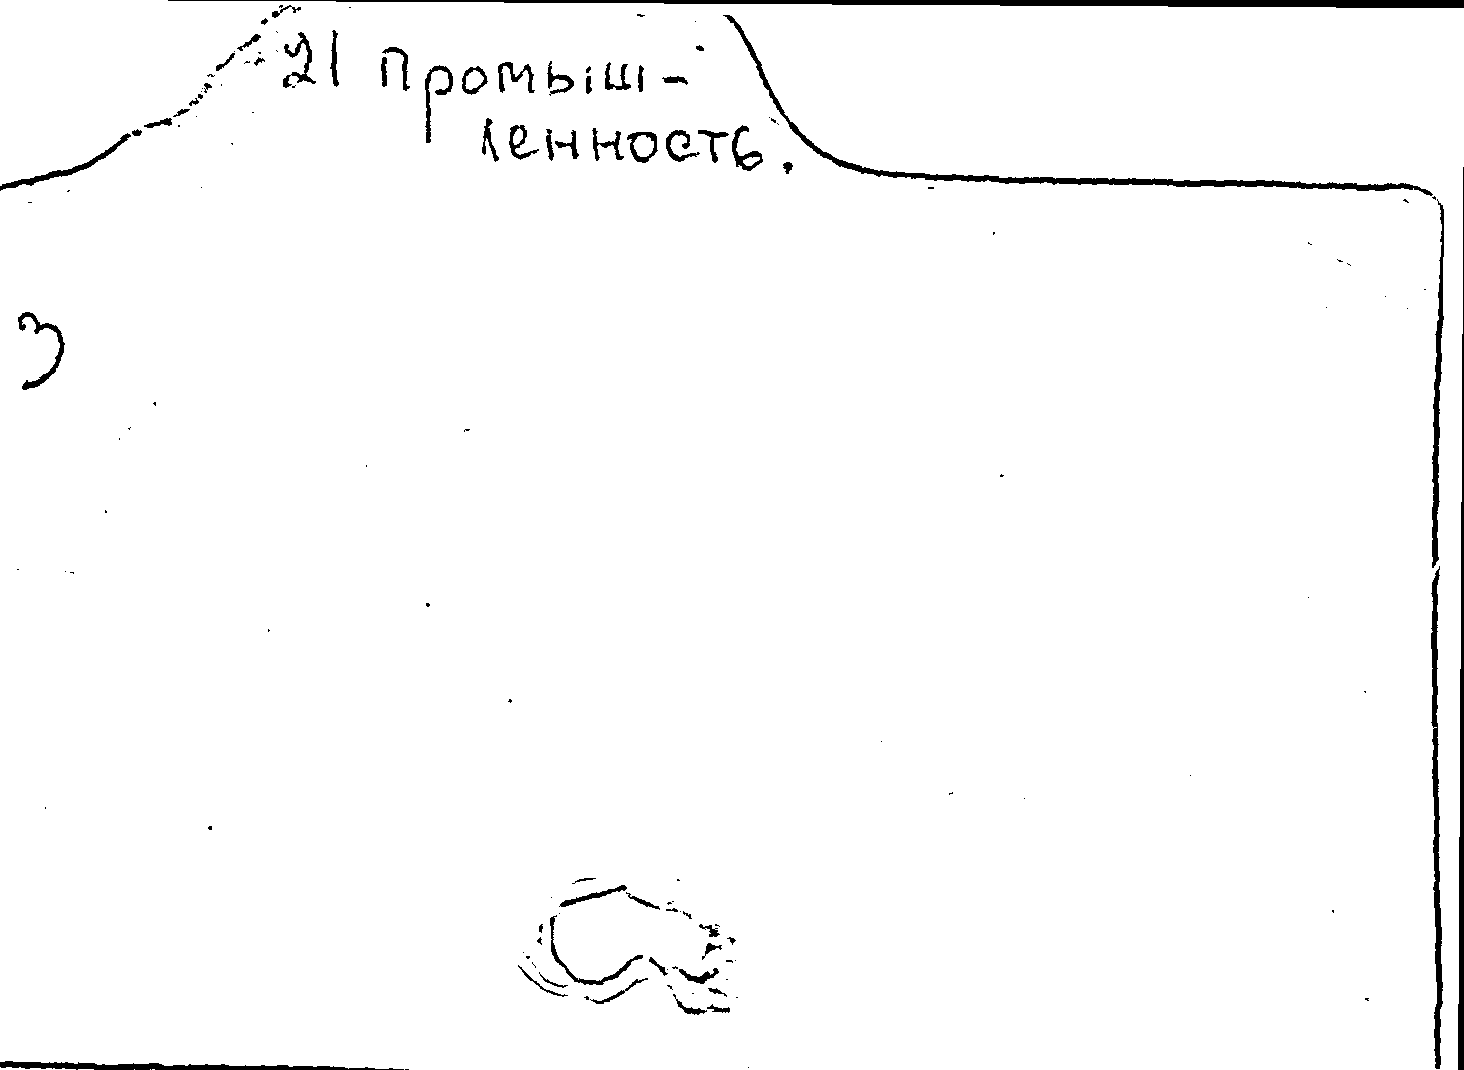 21 Промыш-
ленность.
3